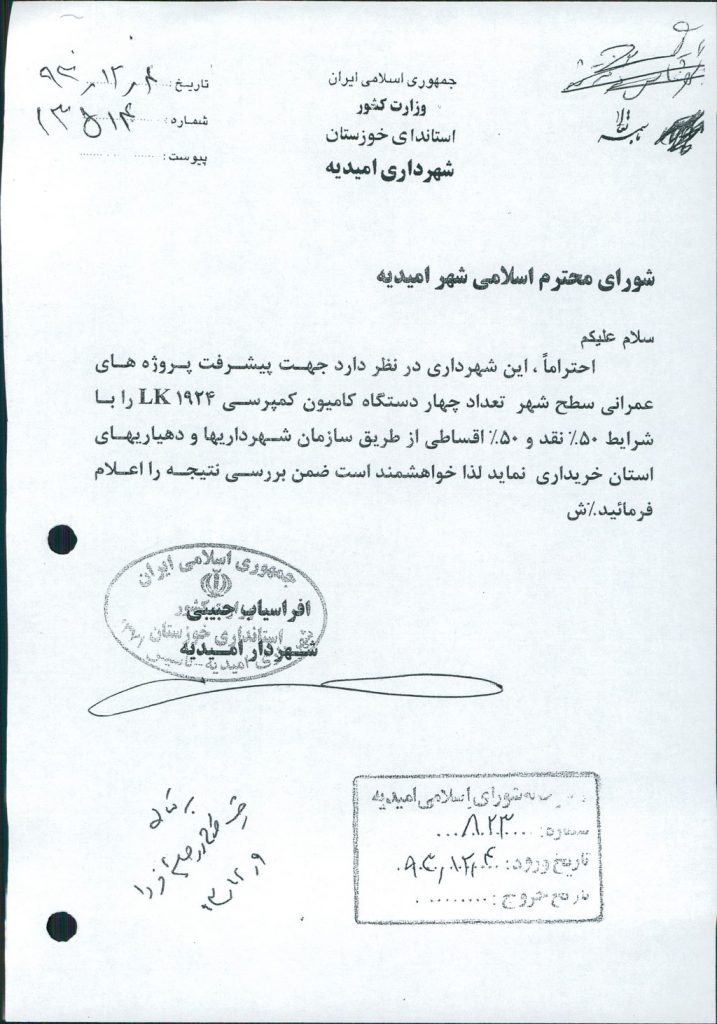 جمهوری اسلامی ایران
وزارت کشور
استاندای خوزستان
شهرداری امیدیه
تاریخ: ۹۳/۱۲/۴
شماره: ۱۳۵۱۴
پیوست:
باسمه تعالی
شورای محترم اسلامی شهر امیدیه
سلام علیکم
احتراماً ، این شهرداری در نظر دارد جهت پیشرفت پروژه های
عمرانی سطح شهر تعداد چهار دستگاه کامیون کمپرسی LK ۱۹۲۴ را با
شرایط ۵۰٪ نقد و ۵۰٪ اقساطی از طریق سازمان شهرداریها و دهیاریهای
استان خریداری نماید لذا خواهشمند است ضمن بررسی نتیجه را اعلام
فرمائید.٪ش
جمهوری اسلامی ایران
وزارت کشور
استانداری خوزستان
امیدیه - تاسیس
افراسیاب حبیبی
شهردار امیدیه
شورای اسلامی امیدیه
شماره: ۸۲۳
تاریخ ورود: ۹۳/۱۲/۴
تاریخ خروج: